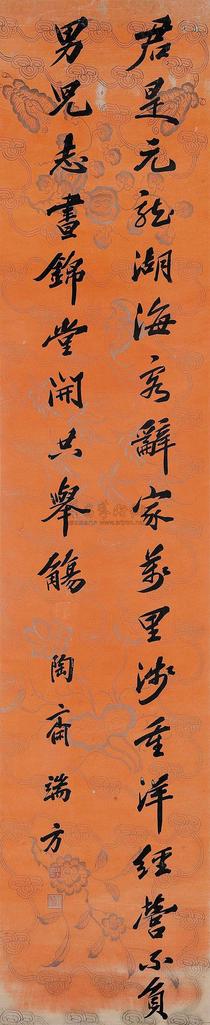 君是元龍湖海客辭家萬里涉重洋經營不負
男兒志晝錦堂開共舉觴
陶齋端方